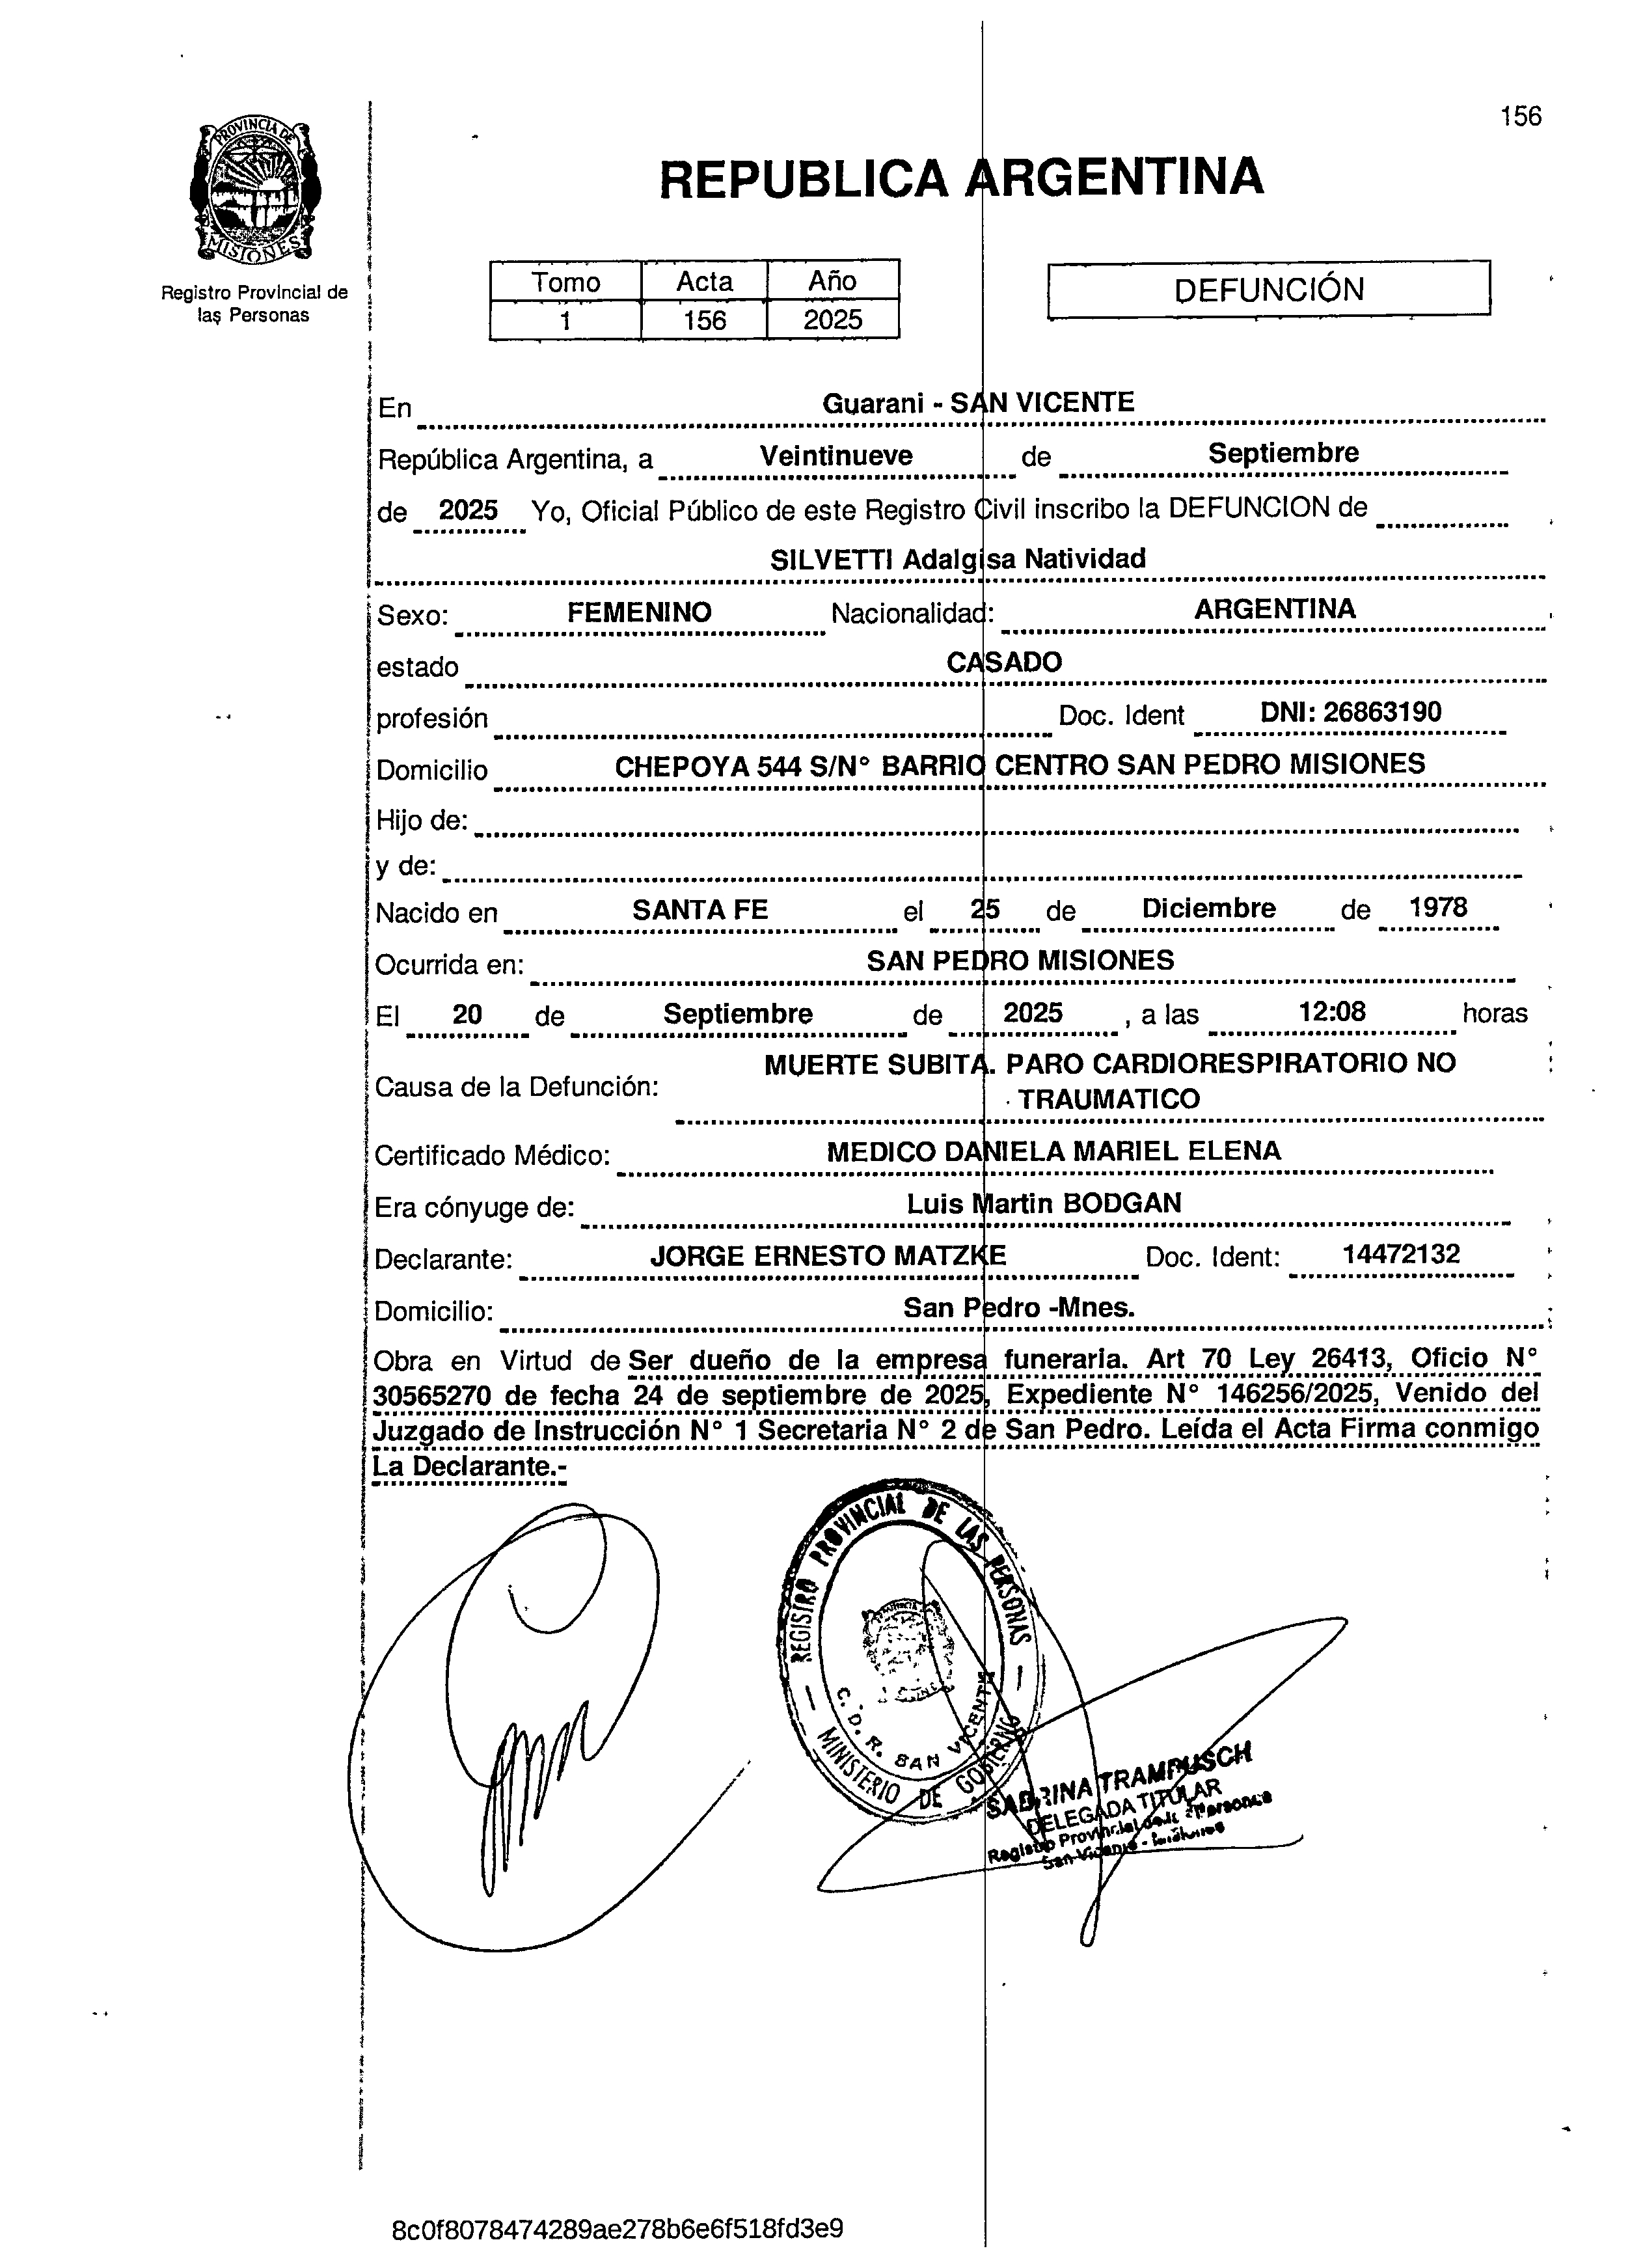 156
PROVINCIA DE
MISIONES
Registro Provincial de
las Personas
REPUBLICA ARGENTINA
Tomo Acta Año
1 156 2025
DEFUNCIÓN
En Guarani - SAN VICENTE
República Argentina, a Veintinueve de Septiembre
de 2025 Yo, Oficial Público de este Registro Civil inscribo la DEFUNCION de
SILVETTI Adalgisa Natividad
Sexo: FEMENINO Nacionalidad: ARGENTINA
estado CASADO
profesión Doc. Ident DNI: 26863190
Domicilio CHEPOYA 544 S/N° BARRIO CENTRO SAN PEDRO MISIONES
Hijo de:
y de:
Nacido en SANTA FE el 25 de Diciembre de 1978
Ocurrida en: SAN PEDRO MISIONES
El 20 de Septiembre de 2025 , a las 12:08 horas
Causa de la Defunción: MUERTE SUBITA. PARO CARDIORESPIRATORIO NO
TRAUMATICO
Certificado Médico: MEDICO DANIELA MARIEL ELENA
Era cónyuge de: Luis Martin BODGAN
Declarante: JORGE ERNESTO MATZKE Doc. Ident: 14472132
Domicilio: San Pedro -Mnes.
Obra en Virtud de Ser dueño de la empresa funeraria. Art 70 Ley 26413, Oficio N°
30565270 de fecha 24 de septiembre de 2025, Expediente N° 146256/2025, Venido del
Juzgado de Instrucción N° 1 Secretaria N° 2 de San Pedro. Leída el Acta Firma conmigo
La Declarante.-
REGISTRO PROVINCIAL DE LAS PERSONAS
C. D. R. SAN VICENTE
MINISTERIO DE GOBIERNO
SABRINA TRAMPUSCH
DELEGADA TITULAR
Registro Provincial de las Personas
San Vicente - Misiones
8c0f8078474289ae278b6e6f518fd3e9